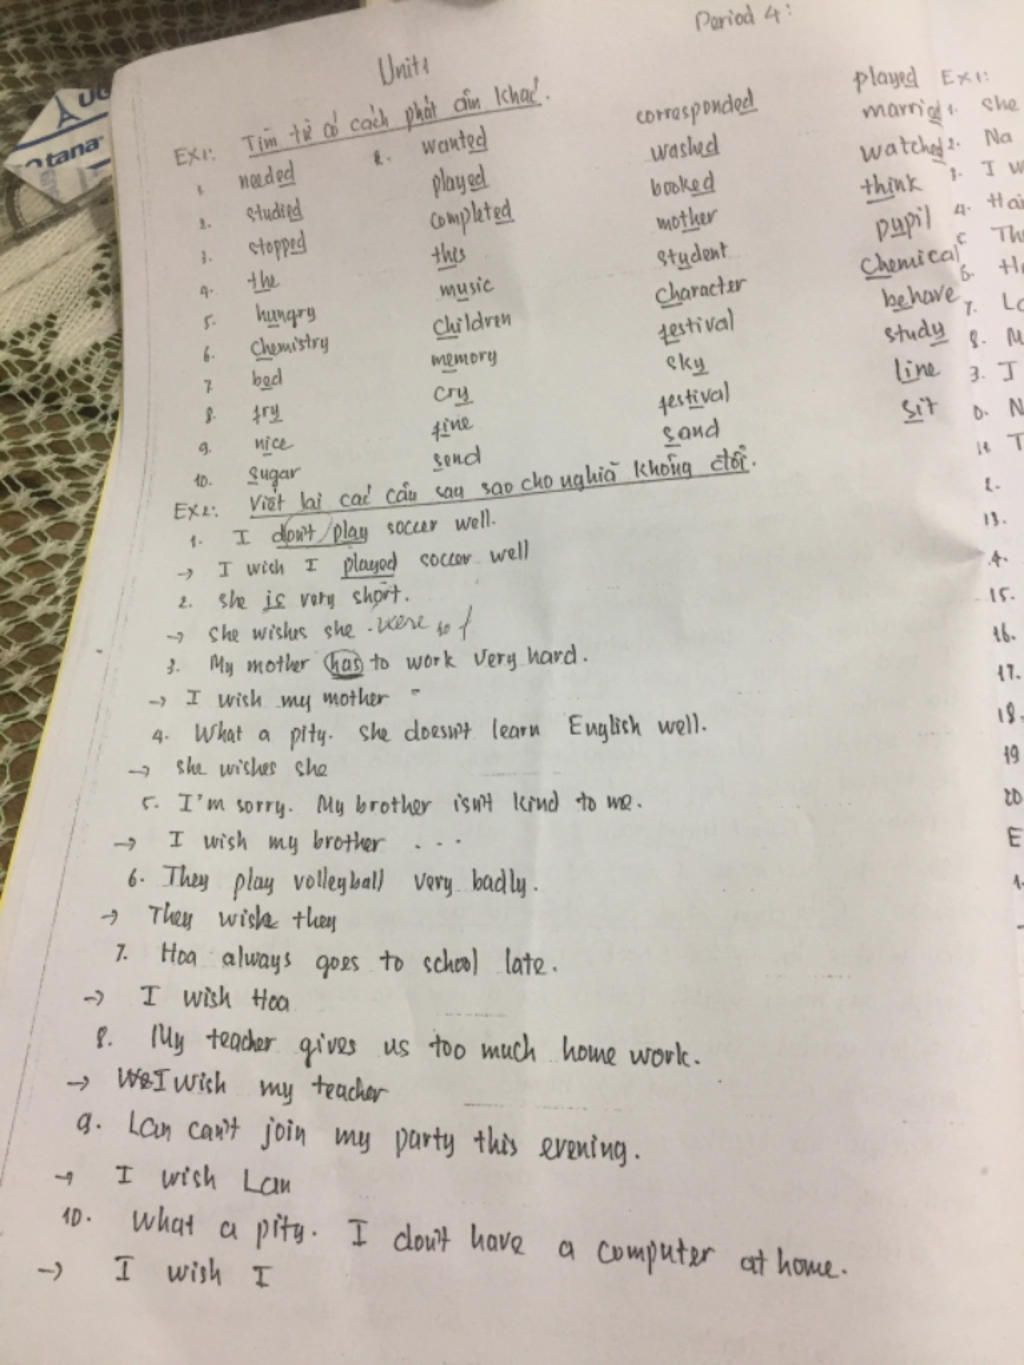 Period 4:
Unit 1
Ex1: Tìm từ có cách phát âm khác.
1. needed 2. wanted corresponded played
2. studied played washed married
3. stopped completed booked watched
4. the this mother think
5. hungry music student pupil
6. Chemistry Children Character Chemical
7. bed memory festival behave
8. fry cry sky study
9. nice fine festival line
10. Sugar send sand sit
Ex2: Viết lại các câu sau sao cho nghĩa không đổi.
1. I don't play soccer well.
→ I wish I played soccer well
2. She is very short.
→ She wishes she were so
3. My mother has to work very hard.
→ I wish my mother
4. What a pity. She doesn't learn English well.
→ she wishes she
5. I'm sorry. My brother isn't kind to me.
→ I wish my brother ...
6. They play volleyball very badly.
→ They wish they
7. Hoa always goes to school late.
→ I wish Hoa
8. My teacher gives us too much home work.
→ I wish my teacher
9. Lan can't join my party this evening.
→ I wish Lan
10. What a pity. I don't have a computer at home.
→ I wish I
Ex1:
1. She
2. Na
3. I w
4. Hai
Th
6. Ha
7. La
8. M
I
N
T
13.
4.
15.
16.
17.
18.
19
20
E
1.